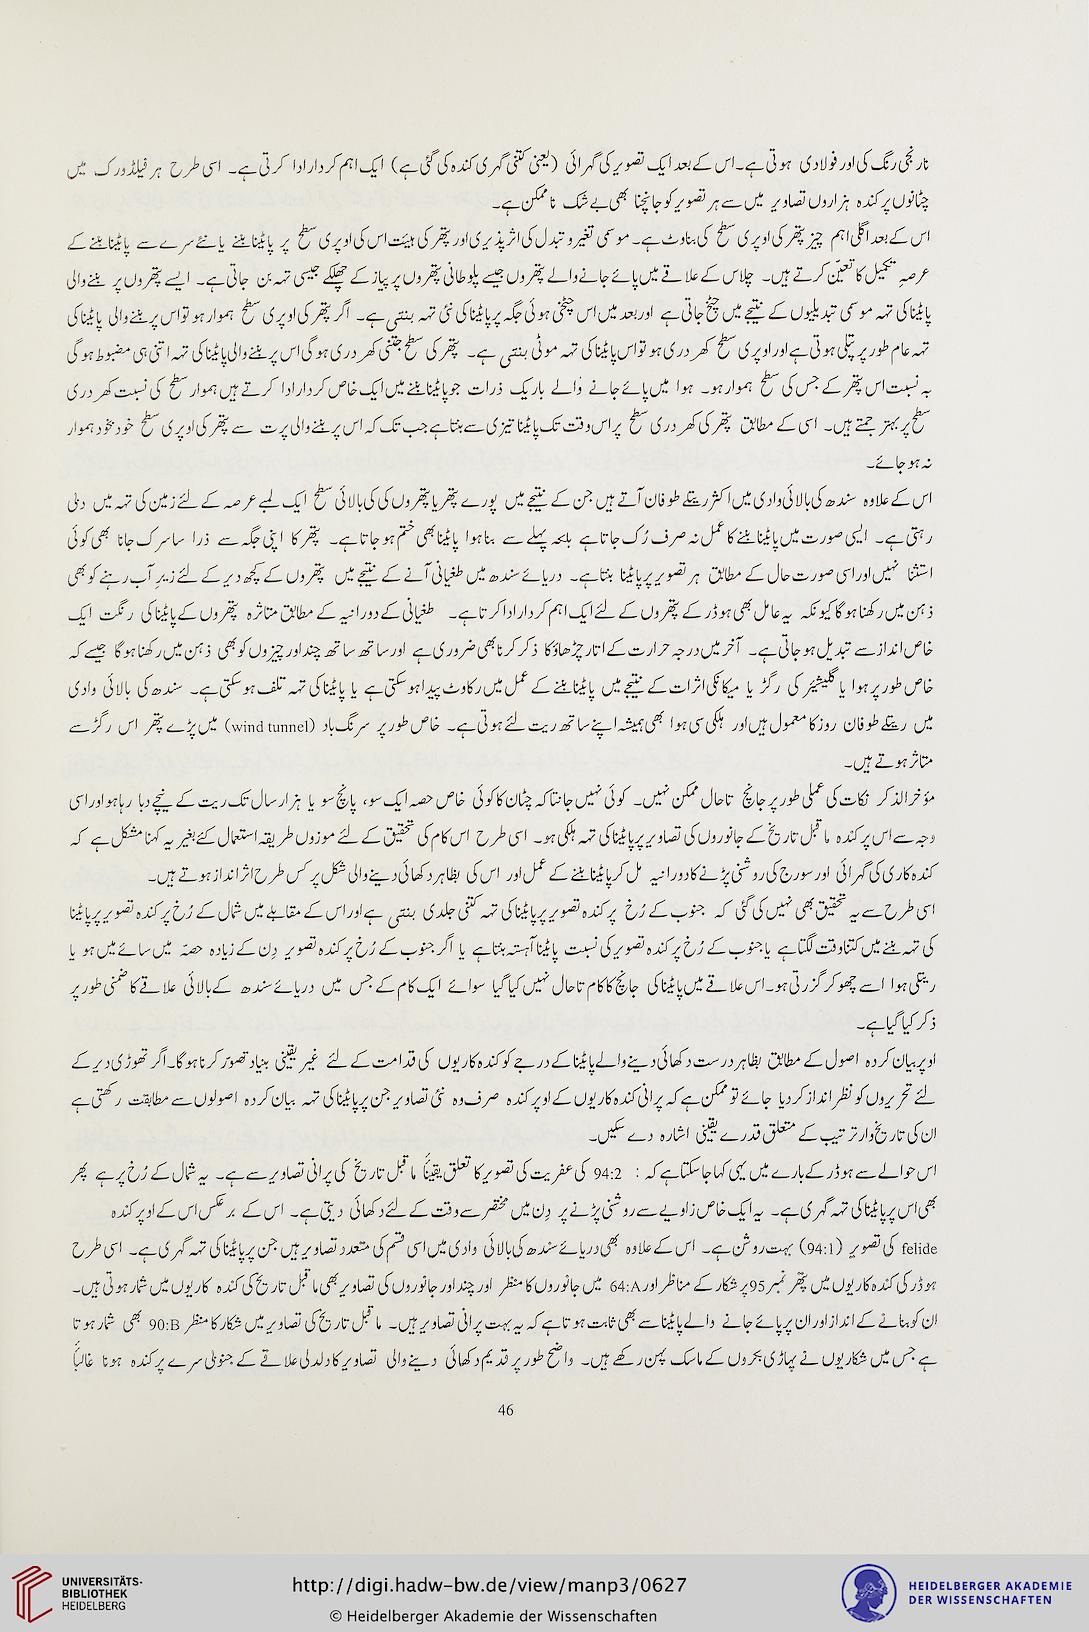 نارنجی رنگ کی اور فولادی ہوتی ہے۔ اس کے بعد ایک تصویر کی گہرائی (یعنی کتنی گہری کندہ کی گئی ہے) ایک اہم کردار ادا کرتی ہے۔ اسی طرح ہر فیلڈ ورک میں
چٹانوں پر کندہ ہزاروں تصاویر میں سے ہر تصویر کو جانچنا بھی بے شک ناممکن ہے۔
اس کے بعد اگلی اہم چیز پتھر کی اوپری سطح کی بناوٹ ہے۔ موسمی تغیر و تبدل کی اثر پذیری اور پتھر کی ہیئت اس کی اوپری سطح پر پاٹینا بننے یا نئے سرے سے پاٹینا بننے کے
عرصہ تکمیل کا تعیّن کرتے ہیں۔ چلاس کے علاقے میں پائے جانے والے پتھروں جیسے پلوطانی پتھروں پر پیاز کے چھلکے جیسی تہہ بن جاتی ہے۔ ایسے پتھروں پر بننے والی
پاٹینا کی تہہ موسمی تبدیلیوں کے نتیجے میں چٹخ جاتی ہے اور بعد میں اس چٹخی ہوئی جگہ پر پاٹینا کی نئی تہہ بنتی ہے۔ اگر پتھر کی اوپری سطح ہموار ہو تو اس پر بننے والی پاٹینا کی
تہہ عام طور پر پتلی ہوتی ہے اور اوپری سطح کھردری ہو تو اس پاٹینا کی تہہ موٹی بنتی ہے۔ پتھر کی سطح جتنی کھردری ہوگی اس پر بننے والی پاٹینا کی تہہ اتنی ہی مضبوط ہوگی
بہ نسبت اس پتھر کے جس کی سطح ہموار ہو۔ ہوا میں پائے جانے والے باریک ذرات جو پاٹینا بننے میں ایک خاص کردار ادا کرتے ہیں ہموار سطح کی نسبت کھردری
سطح پر بہتر جمتے ہیں۔ اسی کے مطابق پتھر کی کھردری سطح پر اس وقت تک پاٹینا تیزی سے بنتا ہے جب تک کہ اس پر بننے والی پرت سے پتھر کی اوپری سطح خود بخود ہموار
نہ ہو جائے۔
اس کے علاوہ سندھ کی بالائی وادی میں اکثر ریتلے طوفان آتے ہیں جن کے نتیجے میں پورے پتھر یا پتھروں کی کی بالائی سطح ایک لمبے عرصہ کے لئے زمین کی تہہ میں دبی
رہتی ہے۔ ایسی صورت میں پاٹینا بننے کا عمل نہ صرف رُک جاتا ہے بلکہ پہلے سے بنا ہوا پاٹینا بھی ختم ہو جاتا ہے۔ پتھر کا اپنی جگہ سے ذرا سا سرک جانا بھی کوئی
استثنا نہیں اور اسی صورت حال کے مطابق ہر تصویر پر پاٹینا بنتا ہے۔ دریائے سندھ میں طغیانی آنے کے نتیجے میں پتھروں کے کچھ دیر کے لئے زیر آب رہنے کو بھی
ذہن میں رکھنا ہوگا کیونکہ یہ عامل بھی ہوڈر کے پتھروں کے لئے ایک اہم کردار ادا کرتا ہے۔ طغیانی کے دورانیہ کے مطابق متاثرہ پتھروں کے پاٹینا کی رنگت ایک
خاص انداز سے تبدیل ہو جاتی ہے۔ آخر میں درجہ حرارت کے اتار چڑھاؤ کا ذکر کرنا بھی ضروری ہے اور ساتھ ساتھ چند اور چیزوں کو بھی ذہن میں رکھنا ہوگا جیسے کہ
خاص طور پر ہوا یا گلیشیئر کی رگڑ یا میکانکی اثرات کے نتیجے میں پاٹینا بننے کے عمل میں رکاوٹ پیدا ہو سکتی ہے یا پاٹینا کی تہہ تلف ہو سکتی ہے۔ سندھ کی بالائی وادی
میں ریتلے طوفان روز کا معمول ہیں اور ہلکی سی ہوا بھی ہمیشہ اپنے ساتھ ریت لئے ہوتی ہے۔ خاص طور پر سرنگ باد (wind tunnel) میں پڑے پتھر اس رگڑ سے
متاثر ہوتے ہیں۔
مؤخر الذکر نکات کی عملی طور پر جانچ تاحال ممکن نہیں۔ کوئی نہیں جانتا کہ چٹان کا کوئی خاص حصہ ایک سو، پانچ سو یا ہزار سال تک ریت کے نیچے دبا رہا ہو اور اسی
وجہ سے اس پر کندہ ما قبل تاریخ کے جانوروں کی تصاویر پر پاٹینا کی تہہ ہلکی ہو۔ اسی طرح اس کام کی تحقیق کے لئے موزوں طریقہ استعمال کئے بغیر یہ کہنا مشکل ہے کہ
کندہ کاری کی گہرائی اور سورج کی روشنی پڑنے کا دورانیہ مل کر پاٹینا بننے کے عمل اور اس کی بظاہر دکھائی دینے والی شکل پر کس طرح اثر انداز ہوتے ہیں۔
اسی طرح سے یہ تحقیق بھی نہیں کی گئی کہ جنوب کے رُخ پر کندہ تصویر پر پاٹینا کی تہہ کتنی جلدی بنتی ہے اور اس کے مقابلے میں شمال کے رُخ پر کندہ تصویر پر پاٹینا
کی تہہ بننے میں کتنا وقت لگتا ہے یا جنوب کے رُخ پر کندہ تصویر کی نسبت پاٹینا آہستہ بنتا ہے یا اگر جنوب کے رُخ پر کندہ تصویر دِن کے زیادہ حصّہ میں سائے میں ہو یا
ریتلی ہوا اسے چھو کر گزرتی ہو۔ اس علاقے میں پاٹینا کی جانچ کا کام تاحال نہیں کیا گیا سوائے ایک کام کے جس میں دریائے سندھ کے بالائی علاقے کا ضمنی طور پر
ذکر کیا گیا ہے۔
اوپر بیان کردہ اصول کے مطابق بظاہر درست دکھائی دینے والے پاٹینا کے درجے کو کندہ کاریوں کی قدامت کے لئے غیر یقینی بنیاد تصوّر کرنا ہوگا۔ اگر تھوڑی دیر کے
لئے تحریروں کو نظر انداز کر دیا جائے تو ممکن ہے کہ پرانی کندہ کاریوں کے اوپر کندہ صرف وہ نئی تصاویر جن پر پاٹینا کی تہہ بیان کردہ اصولوں سے مطابقت رکھتی ہے
ان کی تاریخ وار ترتیب کے متعلق قدرے یقینی اشارہ دے سکیں۔
اس حوالے سے ہوڈر کے بارے میں یہی کہا جا سکتا ہے کہ : 94:2 کی عفریت کی تصویر کا تعلق یقیناً ما قبل تاریخ کی پرانی تصاویر سے ہے۔ یہ شمال کے رُخ پر ہے پھر
بھی اس پر پاٹینا کی تہہ گہری ہے۔ یہ ایک خاص زاویے سے روشنی پڑنے پر دِن میں مختصر سے وقت کے لئے دکھائی دیتی ہے۔ اس کے برعکس اس کے اوپر کندہ
felide کی تصویر (94:1) بہت روشن ہے۔ اس کے علاوہ بھی دریائے سندھ کی بالائی وادی میں اسی قسم کی متعدد تصاویر ہیں جن پر پاٹینا کی تہہ گہری ہے۔ اسی طرح
ہوڈر کی کندہ کاریوں میں پتھّر نمبر 95 پر شکار کے مناظر اور 64:A میں جانوروں کا منظر اور چند اور جانوروں کی تصاویر بھی ما قبل تاریخ کی کندہ کاریوں میں شمار ہوتی ہیں۔
ان کو بنانے کے انداز اور ان پر پائے جانے والے پاٹینا سے بھی ثابت ہوتا ہے کہ یہ بہت پرانی تصاویر ہیں۔ ما قبل تاریخ کی تصاویر میں شکار کا منظر 90:B بھی شمار ہوتا
ہے جس میں شکاریوں نے پہاڑی بکروں کے ماسک پہن رکھے ہیں۔ واضح طور پر قدیم دکھائی دینے والی تصاویر کا دلدلی علاقے کے جنوبی سرے پر کندہ ہونا غالباً
46
UNIVERSITÄTS-
BIBLIOTHEK
HEIDELBERG
http://digi.hadw-bw.de/view/manp3/0627
© Heidelberger Akademie der Wissenschaften
HEIDELBERGER AKADEMIE
DER WISSENSCHAFTEN